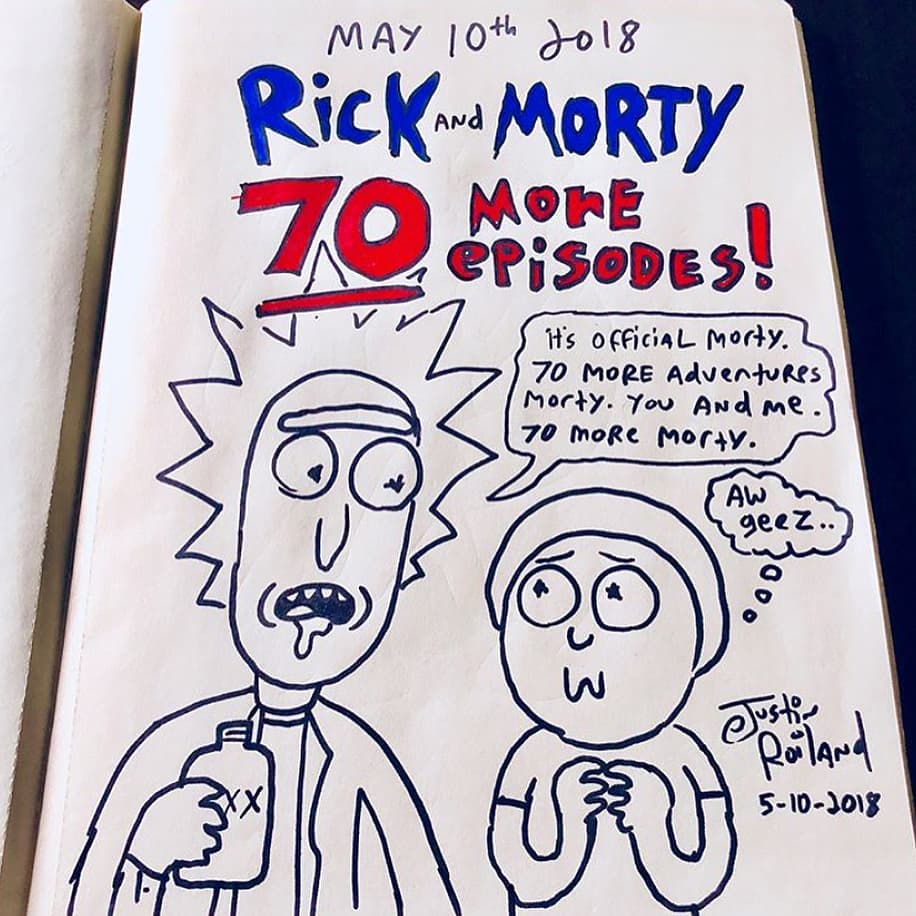 MAY 10th 2018
Rick AND MORTY
70 MORE
EPISODES!
it's official Morty.
70 MORE Adventures
Morty. You And me.
70 more Morty.
AW
geez..
XX
Justin
Roiland
5-10-2018